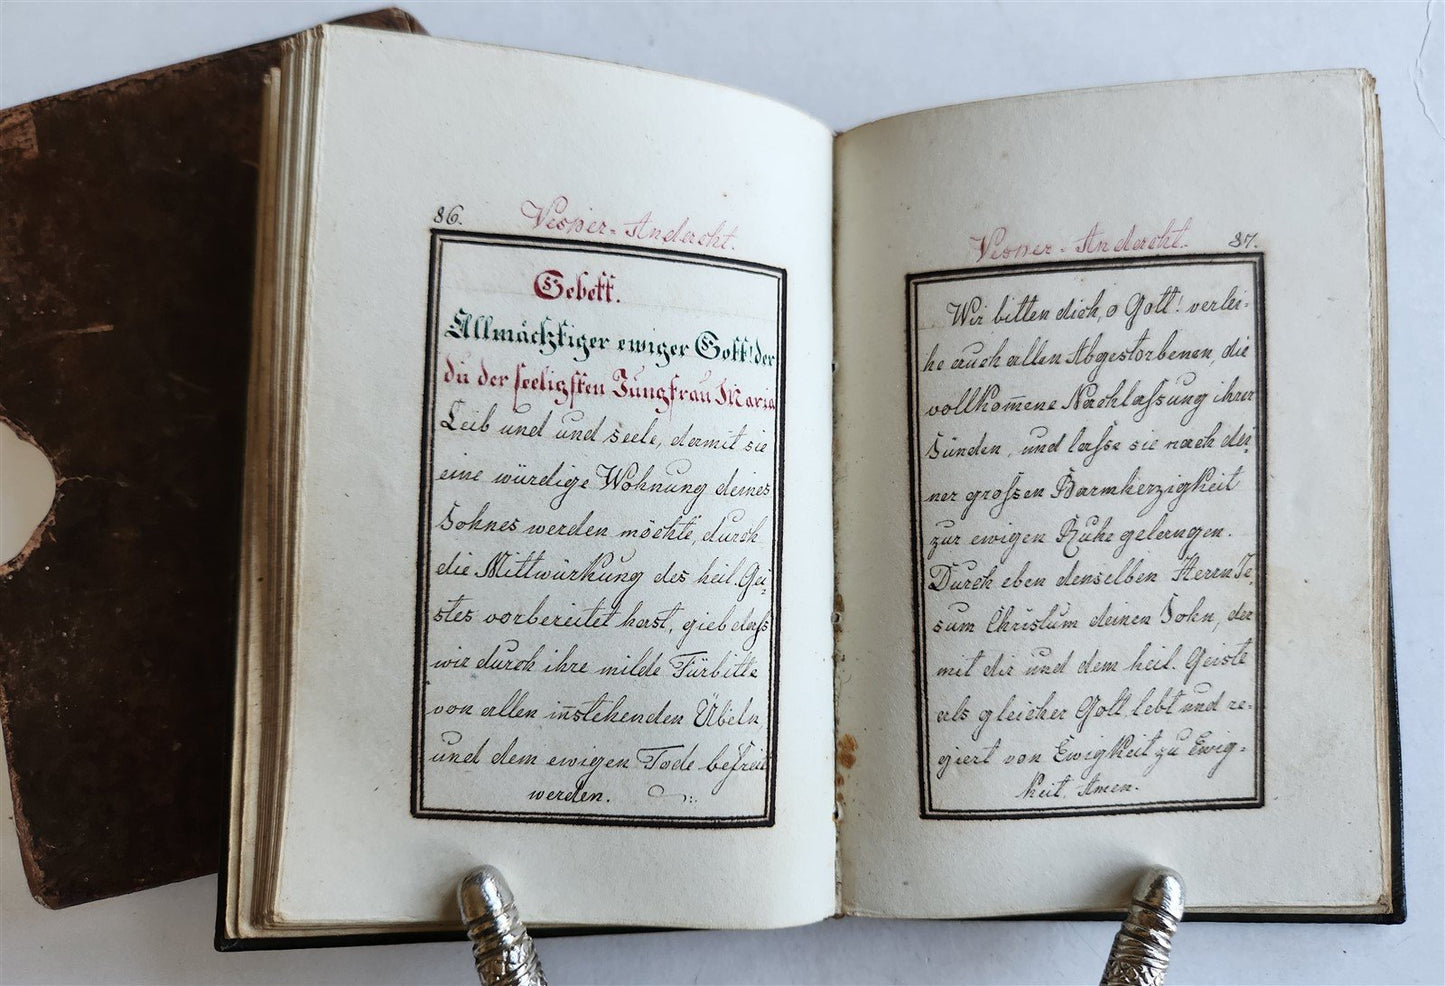 86.
Vesper-Andacht.
Gebett.
Allmächtiger ewiger Gott! der
du der seeligsten Jungfrau Maria
Leib und und Seele, damit sie
eine würdige Wohnung deines
Sohnes werden möchte, durch
die Mittwürkung des heil. Gei-
stes vorbereitet hast, gieb daß
wir durch ihre milde Fürbitte
von allen instehenden Übeln
und dem ewigen Tode befreit
werden.
87.
Vesper-Andacht.
Wir bitten dich, o Gott! verlei-
he auch allen Abgestorbenen, die
vollkom̄ene Nachlassung ihrer
Sünden, und lasse sie nach dei-
ner grossen Barmherzigkeit
zur ewigen Ruhe gelangen.
Durch eben denselben Herrn Je-
sum Christum deinen Sohn, der
mit dir und dem heil. Geiste
als gleicher Gott, lebt und re-
giert von Ewigkeit zu Ewig-
keit, Amen.